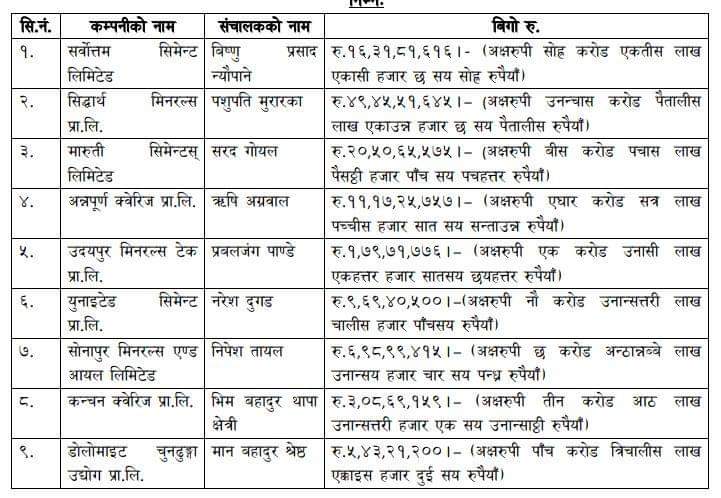 निम्नः
सि.नं. कम्पनीको नाम संचालकको नाम बिगो रु.
१. सर्वोत्तम सिमेन्ट लिमिटेड बिष्णु प्रसाद न्यौपाने रु.१६,३१,८१,६१६।- (अक्षरुपी सोह्र करोड एकतीस लाख
एकासी हजार छ सय सोह्र रुपैयाँ)
२. सिद्धार्थ मिनरल्स प्रा.लि. पशुपति मुरारका रु.४९,४५,५१,६४५।- (अक्षरुपी उनन्चास करोड पैतालीस
लाख एकाउन्न हजार छ सय पैतालीस रुपैयाँ)
३. मारुती सिमेन्टस् लिमिटेड सरद गोयल रु.२०,५०,६५,५७५।- (अक्षरुपी बीस करोड पचास लाख
पैसट्ठी हजार पाँच सय पचहत्तर रुपैयाँ)
४. अन्नपूर्ण क्वेरिज प्रा.लि. ऋषि अग्रवाल रु.११,१७,२५,७५७।- (अक्षरुपी एघार करोड सत्र लाख
पच्चीस हजार सात सय सन्ताउन्न रुपैयाँ)
५. उदयपुर मिनरल्स टेक प्रा.लि. प्रबलजंग पाण्डे रु.१,७९,७१,७७६।- (अक्षरुपी एक करोड उनासी लाख
एकहत्तर हजार सातसय छयहत्तर रुपैयाँ)
६. युनाइटेड सिमेन्ट प्रा.लि. नरेश दुगड रु.९,६९,४०,५००।-(अक्षरुपी नौ करोड उनान्सत्तरी लाख
चालीस हजार पाँचसय रुपैयाँ)
७. सोनापुर मिनरल्स एण्ड आयल लिमिटेड निपेश तायल रु.६,९८,९९,४१५।- (अक्षरुपी छ करोड अन्ठान्नब्बे लाख
उनान्सय हजार चार सय पन्ध्र रुपैयाँ)
८. कन्चन क्वेरिज प्रा.लि. भिम बहादुर थापा क्षेत्री रु.३,०८,६९,१५९।- (अक्षरुपी तीन करोड आठ लाख
उनान्सत्तरी हजार एक सय उनान्साट्ठी रुपैयाँ)
९. डोलोमाइट चुनढुङ्गा उद्योग प्रा.लि. मान बहादुर श्रेष्ठ रु.५,४३,२१,२००।- (अक्षरुपी पाँच करोड त्रिचालीस लाख
एक्काइस हजार दुई सय रुपैयाँ)